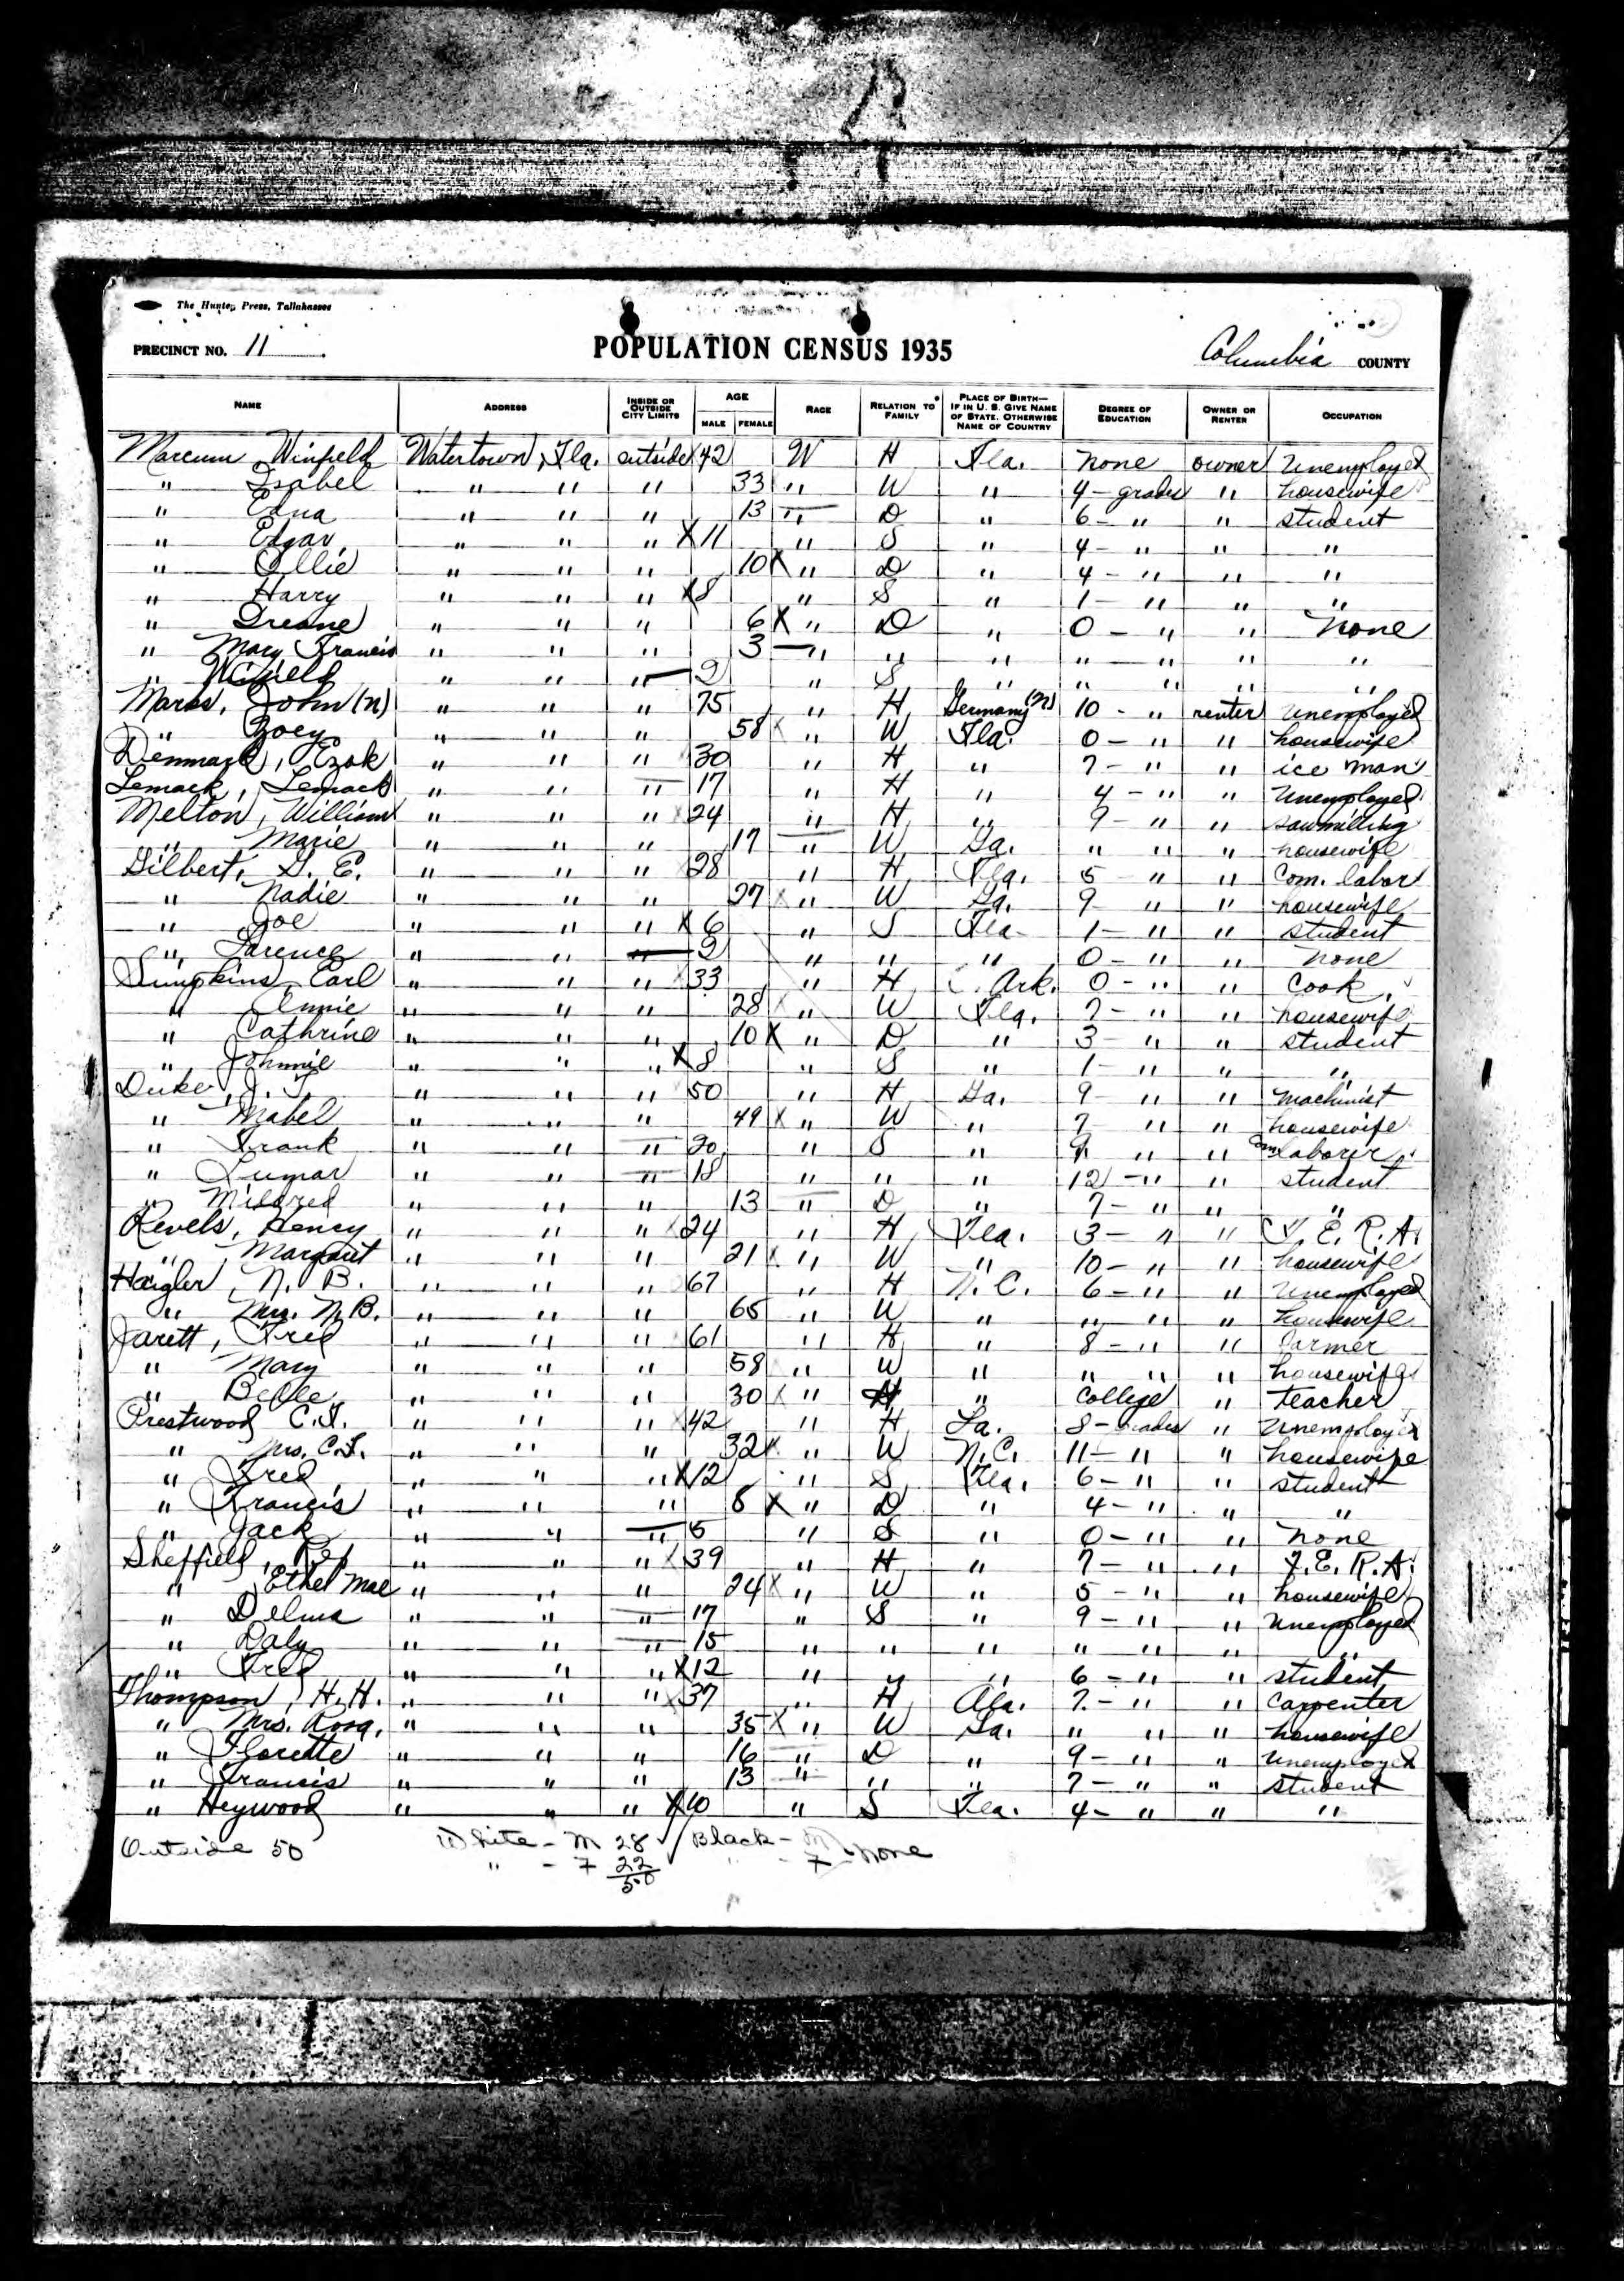 The Hunter Press, Tallahassee
PRECINCT NO. 11 POPULATION CENSUS 1935 Columbia COUNTY
NAME ADDRESS INSIDE OR OUTSIDE CITY LIMITS AGE MALE FEMALE RACE RELATION TO FAMILY PLACE OF BIRTH— IF IN U. S. GIVE NAME OF STATE. OTHERWISE NAME OF COUNTRY DEGREE OF EDUCATION OWNER OR RENTER OCCUPATION
Marcum Winfield Watertown, Fla. outside 42 W H Fla. none owner Unemployed
" Isabel " " " 33 " W " 4 - grades " housewife
" Edna " " " 13 " D " 6 - " " student
" Edgar " " " X 11 " S " 4 - " " "
" Ollie " " " 10 X " D " 4 - " " "
" Harry " " " X 8 " S " 1 - " " "
" Irene " " " 6 X " D " 0 - " " None
" Mary Francis " " " 3 " " " " - " " "
" " " " 2 " S " " " " "
Marks, John (n) " " " 75 " H Germany (n) 10 - " renter Unemployed
" Zoey " " " 58 X " W Fla. 0 - " " housewife
Denmark, Ezak " " " 30 " H " 7 - " " ice man
Lemack, Lemack " " " 17 " H " 4 - " " Unemployed
Melton, William " " " X 24 " H " 9 - " " sawmilling
" Marie " " " 17 " W Ga. " " " housewife
Gilbert, G. E. " " " 28 " H Fla. 5 - " " Com. labor
" Nadie " " " 27 X " W Ga. 9 " " housewife
" Joe " " " X 6 " S Fla 1 - " " student
" " " " 2 " " " 0 - " " none
Simpkins, Earl " " " 33 " H Ark. 0 - " " Cook
" Annie " " " 28 X " W Fla. 7 - " " housewife
" Cathrine " " " 10 X " D " 3 - " " student
" Johnnie " " " X 8 " S " 1 - " " "
Duke, J. T. " " " 50 " H Ga. 9 - " " machinist
" Mabel " " " 49 X " W " 7 " " housewife
" Frank " " " 20 " S " 9 " " Com laborer
" Lumar " " " 18 " " " 12 - " " student
" Mildred " " " 13 " D " 7 - " " "
Revels, Henry " " " X 24 " H Fla. 3 - " " F. E. R. A.
" Margaret " " " 21 X " W " 10 - " " housewife
Haigler, N. B. " " " 67 " H N. C. 6 - " " Unemployed
" Mrs. N. B. " " " 65 " W " " " " housewife
Jarett, Fred " " " 61 " H " 8 - " " farmer
" Mary " " " 58 " W " " " " housewife
" Belle " " " 30 X " H " College " teacher
Prestwood C. F. " " " X 42 " H Ga. 8 - grades " Unemployed
" Mrs. C. F. " " " 32 X " W N. C. 11 - " " housewife
" Fred " " " X 12 " S Fla. 6 - " " student
" Francis " " " 8 X " D " 4 - " " "
" Jack " " " 5 " S " 0 - " " none
Sheffield, " " " X 39 " H " 7 - " " F. E. R. A.
" Ethel Mae " " " 24 X " W " 5 - " " housewife
" Delma " " " 17 " S " 9 - " " Unemployed
" Daly " " " 15 " " " " " " "
" Fred " " " X 12 " " " 6 - " " student
Thompson, H. H. " " " X 37 " H Ala. 7 - " " Carpenter
" Mrs. Rosa, " " " 35 X " W Ga. " " " housewife
" Florette " " " 16 " D " 9 - " " Unemployed
" Francis " " " 13 " " " 7 - " " student
" Heywood " " " X 10 " S Fla. 4 - " " "
Outside 50 White - M 28 Black - M
" - F 22 " - F none
50